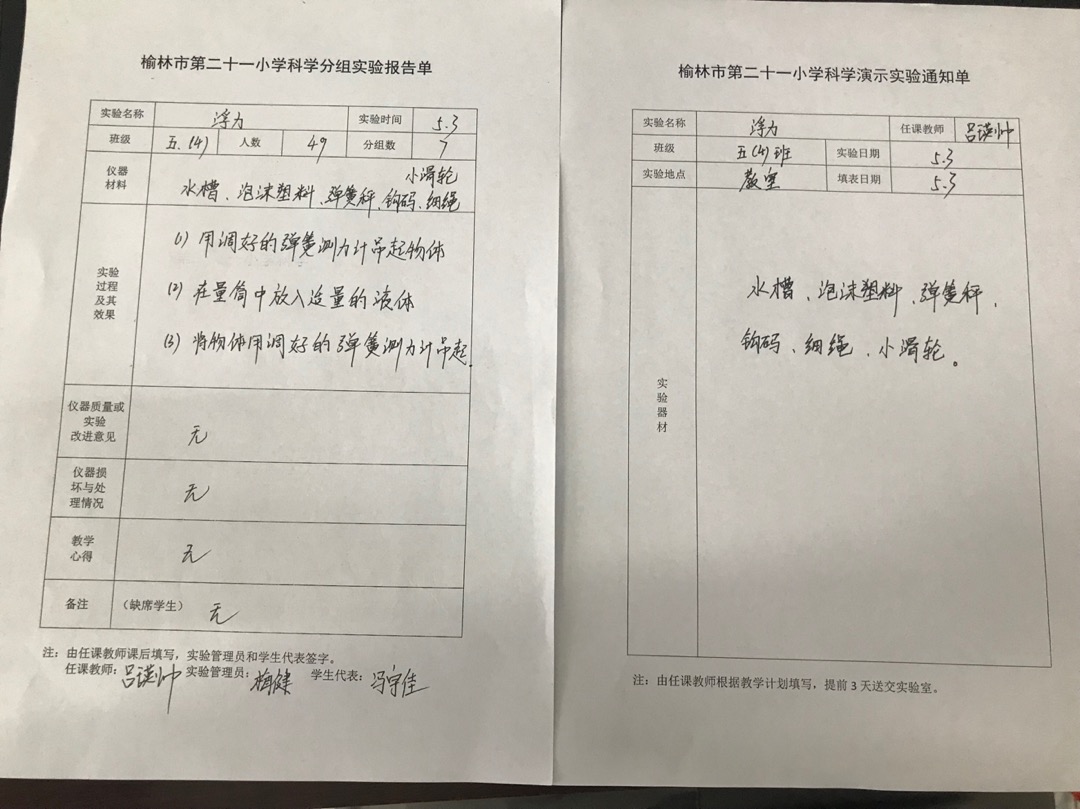 榆林市第二十一小学科学分组实验报告单
实验名称 浮力 实验时间 5.3
班级 五.(4) 人数 49 分组数 7
仪器
材料
小滑轮
水槽、泡沫塑料、弹簧秤、钩码、细绳
实验
过程
及其
效果
(1) 用调好的弹簧测力计吊起物体
(2) 在量筒中放入适量的液体
(3) 将物体用调好的弹簧测力计吊起.
仪器质量或
实验
改进意见
无
仪器损
坏与处
理情况
无
教学
心得
无
备注 (缺席学生) 无
注：由任课教师课后填写，实验管理员和学生代表签字。
任课教师: 吕 帅 实验管理员: 梅健 学生代表: 冯宇佳
榆林市第二十一小学科学演示实验通知单
实验名称 浮力 任课教师 吕 帅
班级 五(4)班 实验日期 5.3
实验地点 教室 填表日期 5.3
实
验
器
材
水槽、泡沫塑料、弹簧秤、
钩码、细绳、小滑轮。
注：由任课教师根据教学计划填写，提前 3 天送交实验室。